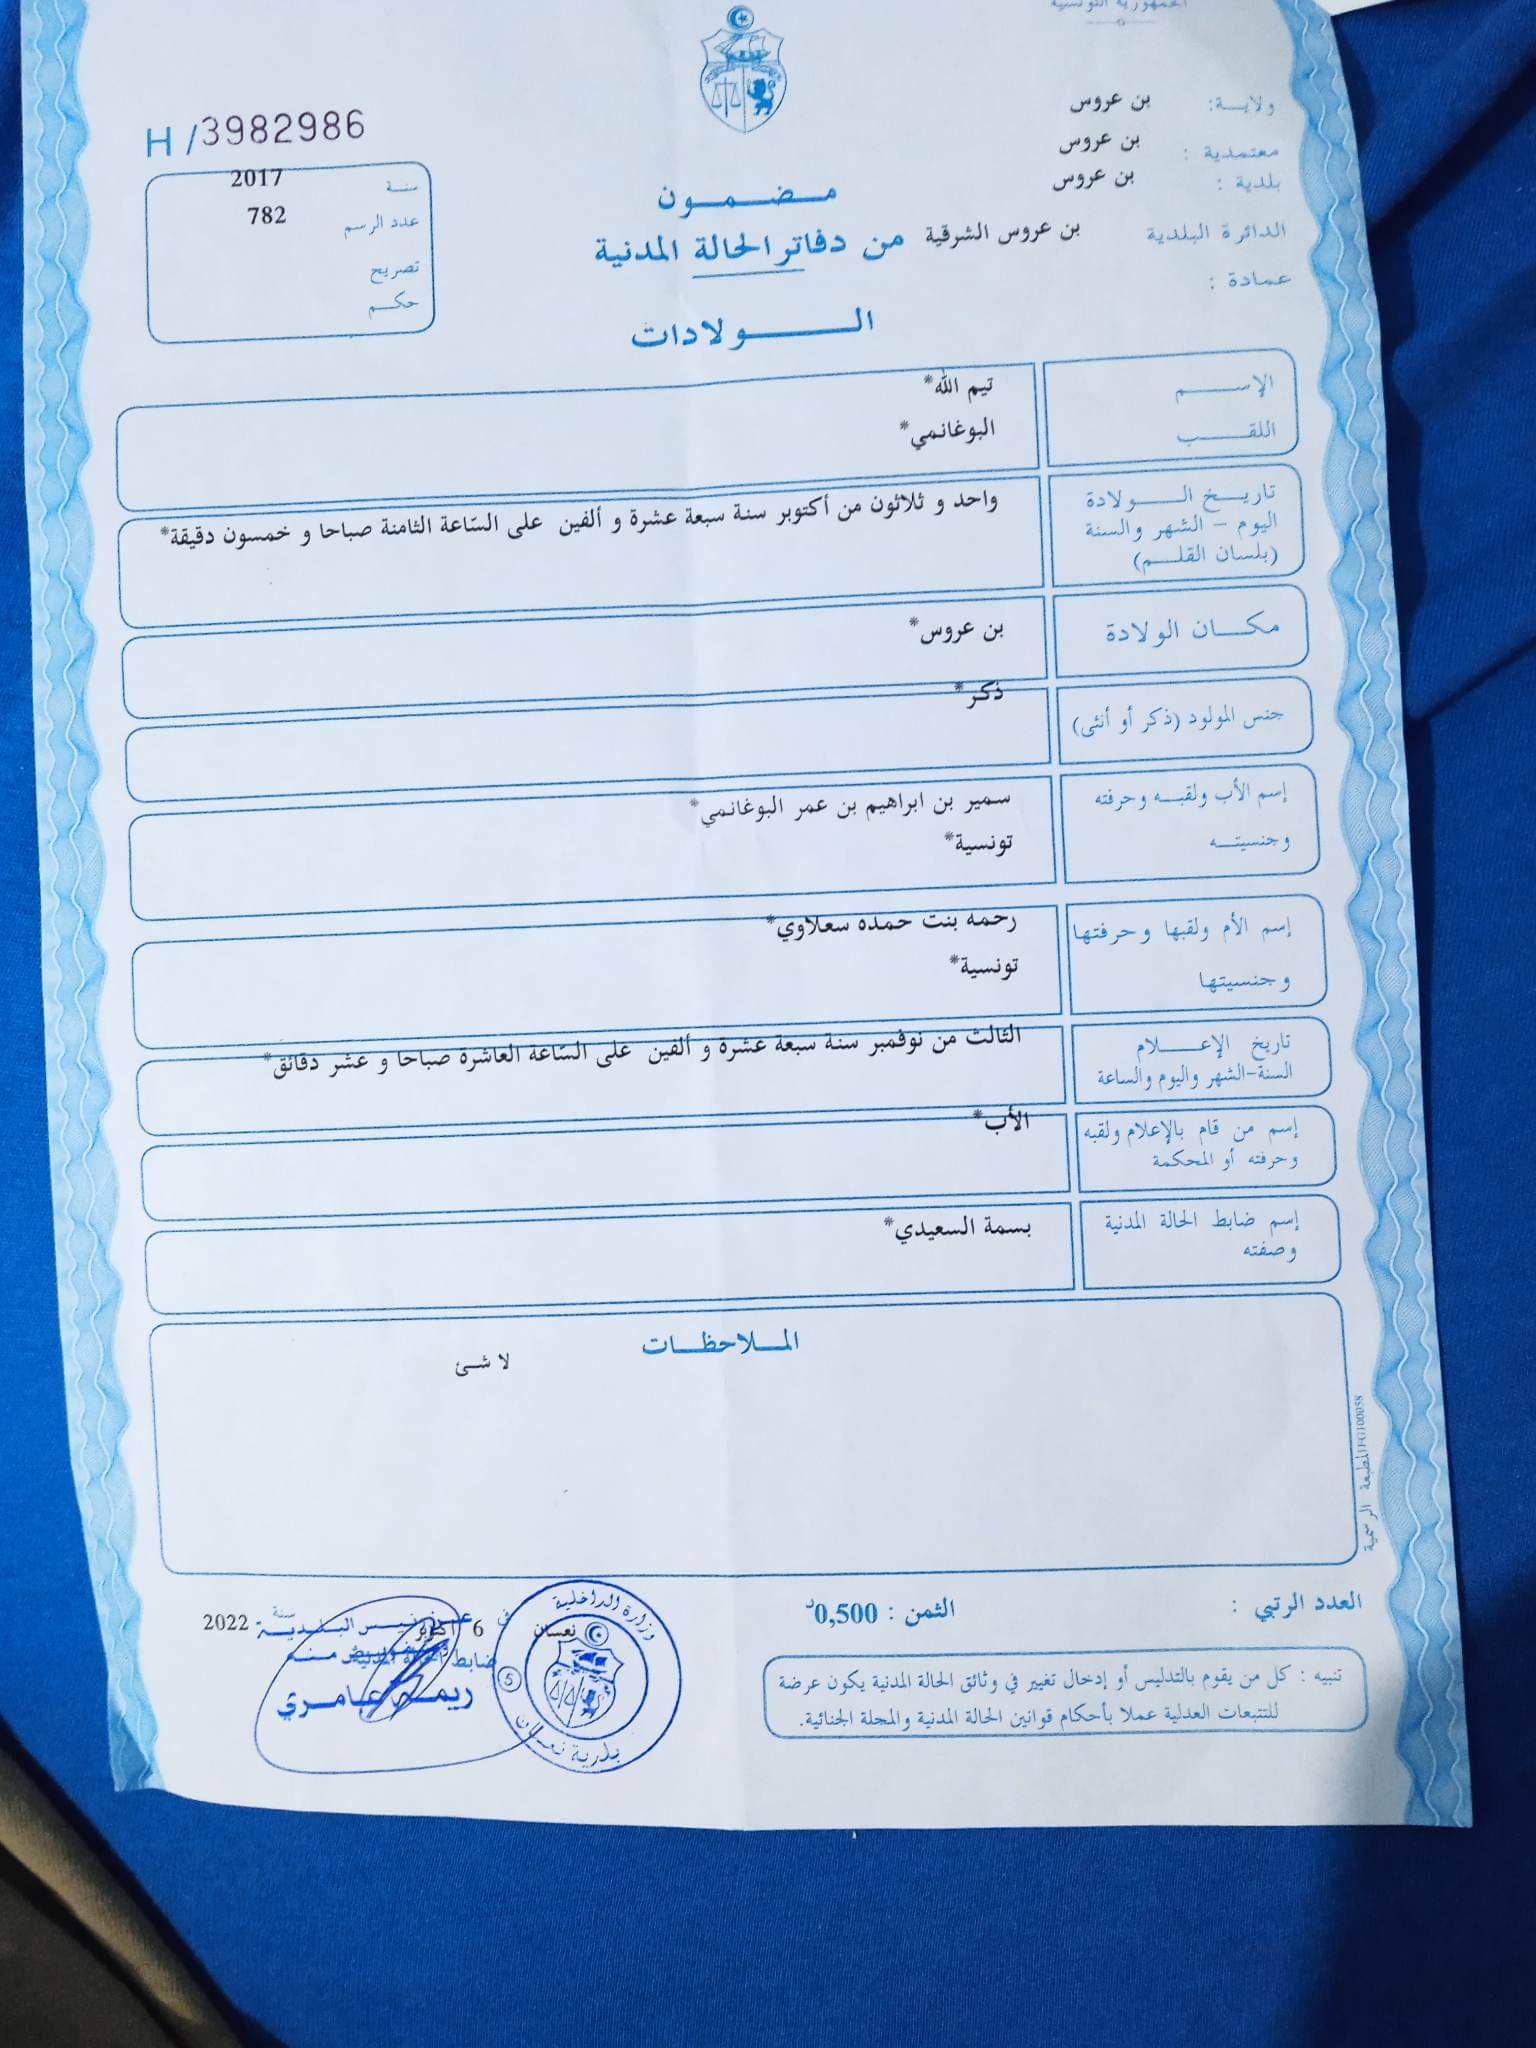 الجمهورية التونسية
ولايـــة: بن عروس
معتمدية : بن عروس
بلدية : بن عروس
الدائرة البلدية بن عروس الشرقية
عمادة :
H / 3982986
سنة 2017
عدد الرسم 782
تصريح
حكـم
مـضـمـون
من دفاتر الحالة المدنية
الــولادات
الإســـم تيم الله*
اللقـــب البوغانمي*
تاريـخ الـــولادة
اليوم - الشهر والسنة
(بلسان القلـم)
واحد و ثلاثون من أكتوبر سنة سبعة عشرة و ألفين على السّاعة الثامنة صباحا و خمسون دقيقة*
مكـان الولادة بن عروس*
جنس المولود (ذكر أو أنثى) ذكر*
إسم الأب ولقبـه وحرفته سمير بن ابراهيم بن عمر البوغانمي*
وجنسيتـه تونسية*
إسم الأم ولقبها وحرفتها رحمه بنت حمده سعلاوي*
وجنسيتها تونسية*
تاريخ الإعـــلام
السنة-الشهر واليوم والساعة
الثالث من نوفمبر سنة سبعة عشرة و ألفين على السّاعة العاشرة صباحا و عشر دقائق*
إسم من قام بالإعلام ولقبه
وحرفته أو المحكمة
الأب*
إسم ضابط الحالة المدنية
وصفته
بسمة السعيدي*
المــلاحظــات
لا شئ
المطبعة الرسمية
العدد الرتبي :
الثمن : 0,500د
نعسان في 6 أكتوبر سنة 2022
عن رئيس البلدية
ضابط الحالة المدنية
ريمـا عامري
وزارة الداخلية
5
بلدية نعسان
تنبيه : كل من يقوم بالتدليس أو إدخال تغيير في وثائق الحالة المدنية يكون عرضة
للتتبعات العدلية عملا بأحكام قوانين الحالة المدنية والمجلة الجنائية.